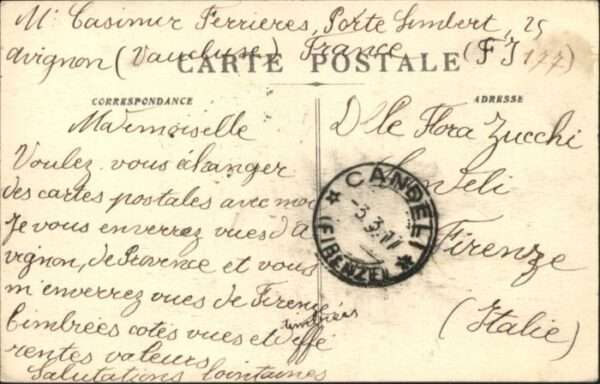 Mr Casimir Ferrieres, Porte Limbert, 25
Avignon (Vaucluse) France (FJ 177)
CARTE POSTALE
CORRESPONDANCE
Mademoiselle
Voulez vous échanger
des cartes postales avec moi
Je vous enverrez vues d'A
vignon, de Provence et vous
m'enverrez vues de Firenze
timbrées cotés vues et diffé
timbrées
rentes valeurs
Salutations lointaines
ADRESSE
Dlle Flora Zucchi
Candeli
Firenze
(Italie)
CANDELI
3.3.11
(FIRENZE)